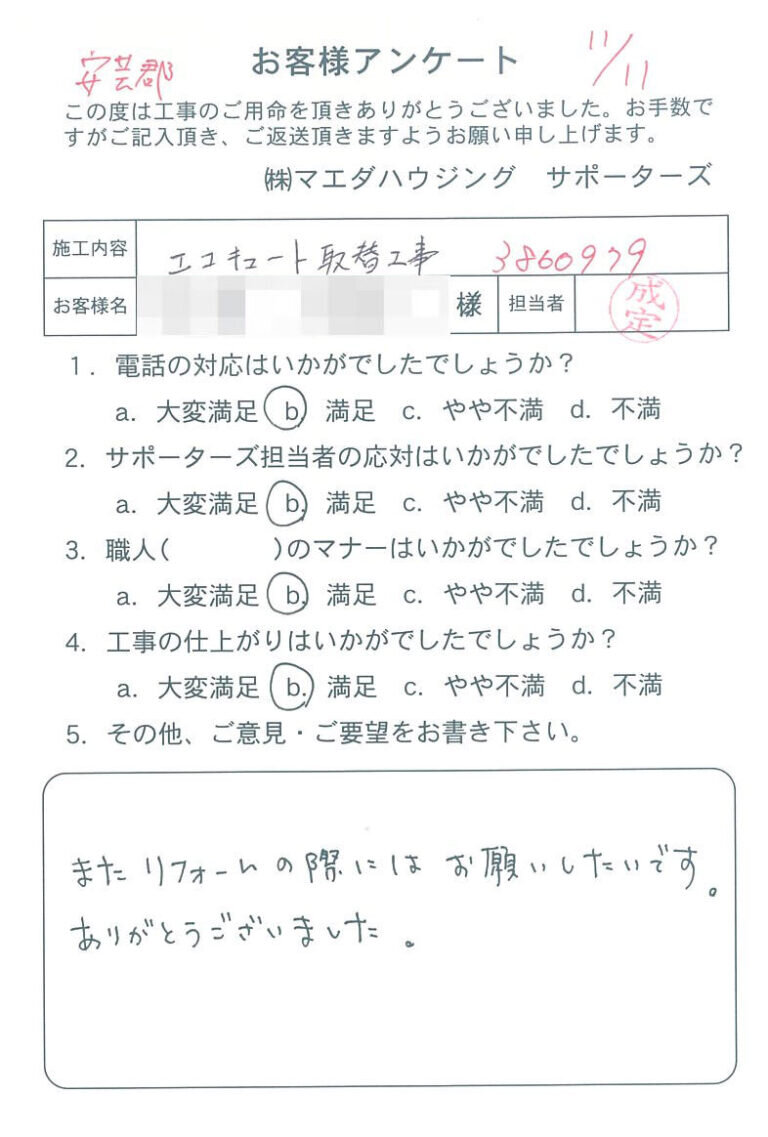 安芸郡 お客様アンケート 11/11
この度は工事のご用命を頂きありがとうございました。お手数で
すがご記入頂き、ご返送頂きますようお願い申し上げます。
㈱マエダハウジング サポーターズ
施工内容 エコキュート取替工事 3860979
お客様名 様 担当者 成定
1. 電話の対応はいかがでしたでしょうか？
a. 大変満足 b. 満足 c. やや不満 d. 不満
2. サポーターズ担当者の応対はいかがでしたでしょうか？
a. 大変満足 b. 満足 c. やや不満 d. 不満
3. 職人( )のマナーはいかがでしたでしょうか？
a. 大変満足 b. 満足 c. やや不満 d. 不満
4. 工事の仕上がりはいかがでしたでしょうか？
a. 大変満足 b. 満足 c. やや不満 d. 不満
5. その他、ご意見・ご要望をお書き下さい。
またリフォームの際にはお願いしたいです。
ありがとうございました。